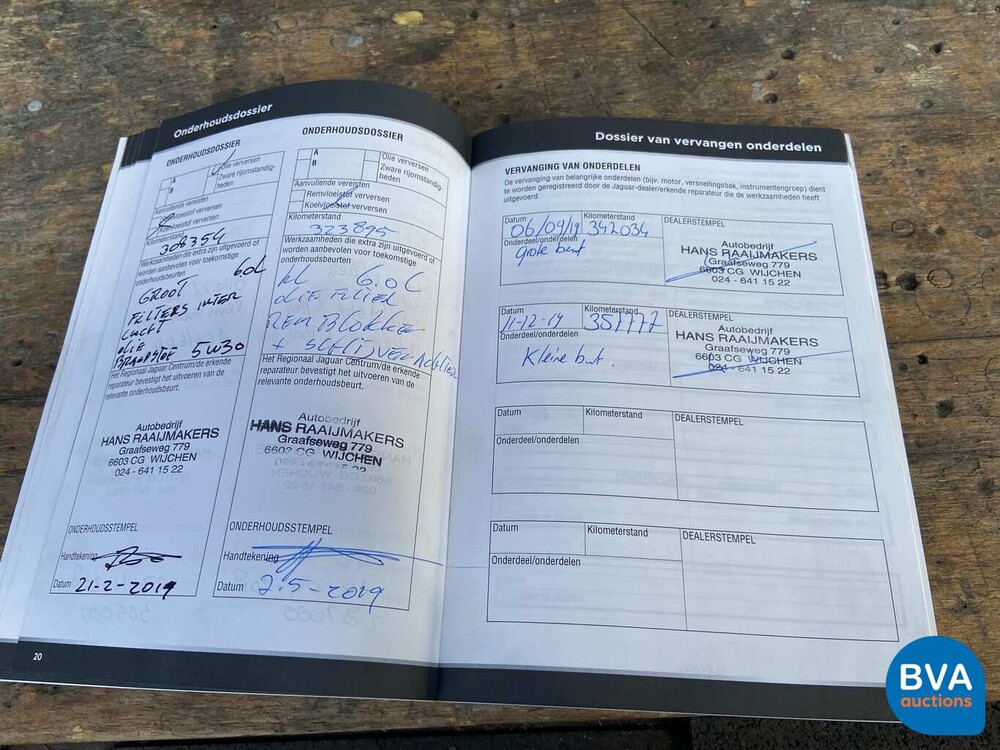 Onderhoudsdossier
ONDERHOUDSDOSSIER
A
B
Olie verversen
Zware rijomstandig-
heden
Aanvullende vereisten
Remvloeistof verversen
Koelvloeistof verversen
Kilometerstand
308354
Werkzaamheden die extra zijn uitgevoerd of
worden aanbevolen voor toekomstige
onderhoudsbeurten
6.0L
GROOT
FILTERS INTER
LUCHT
OLIE
BRANDSTOF 5W30
Het Regionaal Jaguar Centrum/de erkende
reparateur bevestigt het uitvoeren van de
relevante onderhoudsbeurt.
Autobedrijf
HANS RAAIJMAKERS
Graafseweg 779
6603 CG WIJCHEN
024 - 641 15 22
ONDERHOUDSSTEMPEL
Handtekening
Datum 21-2-2019
20
ONDERHOUDSDOSSIER
A
B
Olie verversen
Zware rijomstandig-
heden
Aanvullende vereisten
Remvloeistof verversen
Koelvloeistof verversen
Kilometerstand
323895
Werkzaamheden die extra zijn uitgevoerd of
worden aanbevolen voor toekomstige
onderhoudsbeurten
kl 6.0L
OLIE FILTER
REM BLOKKE
+ SCHIJVEN ACHTER
Het Regionaal Jaguar Centrum/de erkende
reparateur bevestigt het uitvoeren van de
relevante onderhoudsbeurt.
Autobedrijf
HANS RAAIJMAKERS
Graafseweg 779
6603 CG WIJCHEN
ONDERHOUDSSTEMPEL
Handtekening
Datum 2-5-2019
Dossier van vervangen onderdelen
VERVANGING VAN ONDERDELEN
De vervanging van belangrijke onderdelen (bijv. motor, versnellingsbak, instrumentengroep) dient
te worden geregistreerd door de Jaguar-dealer/erkende reparateur die de werkzaamheden heeft
uitgevoerd.
Datum Kilometerstand DEALERSTEMPEL
06/09/19 342034
Onderdeel/onderdelen
grote beurt
Autobedrijf
HANS RAAIJMAKERS
Graafseweg 779
6603 CG WIJCHEN
024 - 641 15 22
Datum Kilometerstand DEALERSTEMPEL
11-12-19 357777
Onderdeel/onderdelen
Kleine b.t.
Autobedrijf
HANS RAAIJMAKERS
Graafseweg 779
6603 CG WIJCHEN
024 - 641 15 22
Datum Kilometerstand DEALERSTEMPEL
Onderdeel/onderdelen
Datum Kilometerstand DEALERSTEMPEL
Onderdeel/onderdelen
BVA
auctions